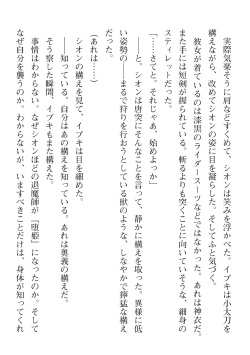 実際気楽そうに肩をすくめて、シオンは笑みを浮かべた。イブキは小太刀を
構えながら、改めてシオンの姿に目を凝らした。そしてふと気づく。
彼女が着ているのは漆黒のライダースーツなどではなかった。あれは神衣だ。
また手には短剣が握られている。斬るよりも突くことに向いていそうな、細身の
スティレットだった。
「……さてと。それじゃあ、始めよっか」
――と、シオンは唐突にそんなことを言って、静かに構えを取った。異様に低
い姿勢の――まるで狩りを行おうとしている獣のような、しなやかで獰猛な構え
だった。
（あれは……）
シオンの構えを見て、イブキは目を細めた。
――知っている。自分はあの構えを知っている。あれは奥義の構えだ。
そう察した瞬間、イブキもまた構えた。
事情はわからない。なぜシオンほどの退魔師が『堕姫』になったのか。そして
なぜ自分を襲うのか。わからないが、いますべきことだけは、身体が知ってくれ